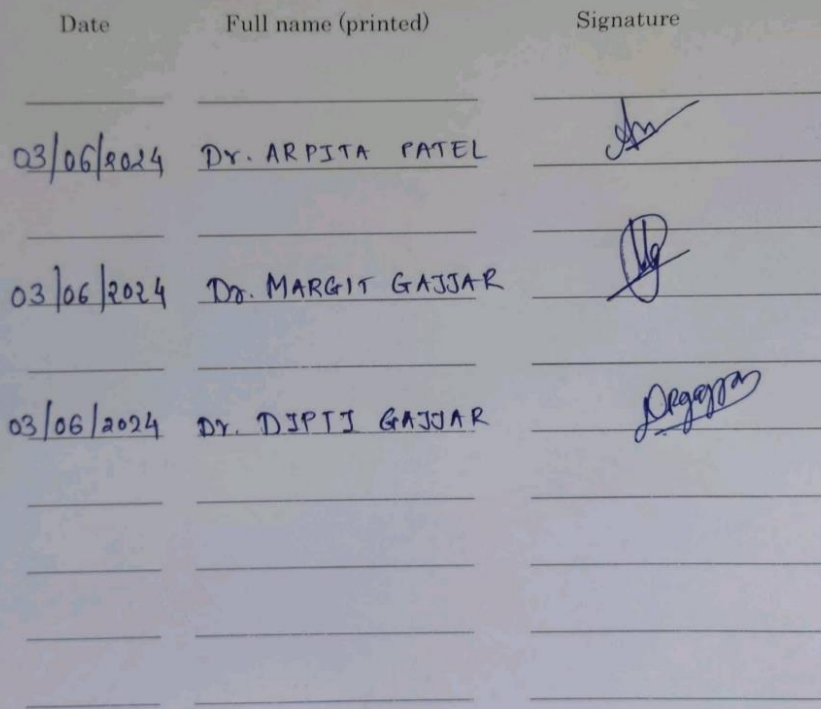 Date Full name (printed) Signature
03/06/2024 Dr. ARPITA PATEL
03/06/2024 Dr. MARGIT GAJJAR
03/06/2024 Dr. DIPTI GAJJAR